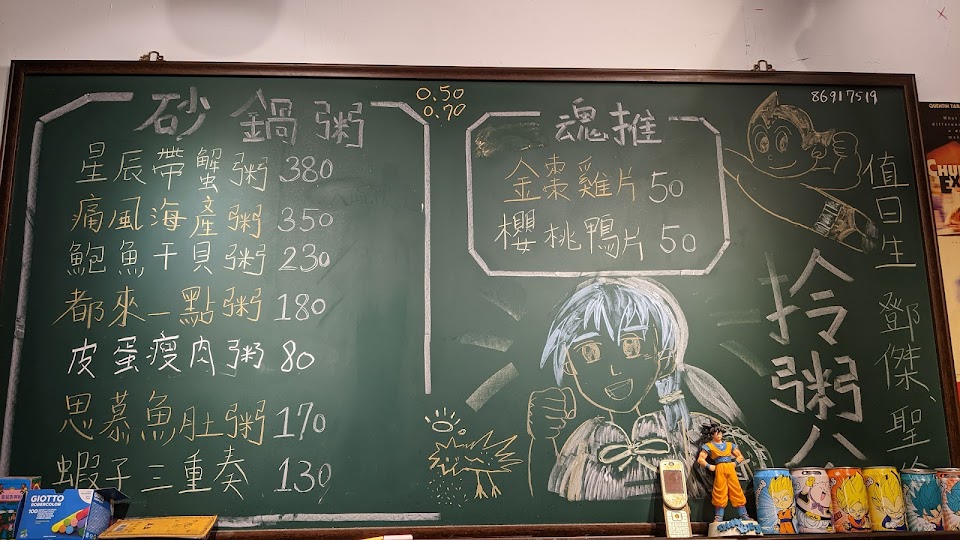 砂鍋粥
星辰帶蟹粥 380
痛風海產粥 350
鮑魚干貝粥 230
都來一點粥 180
皮蛋瘦肉粥 80
思慕魚肚粥 170
蝦子三重奏 130
0.50
0.70
魂推
金棗雞片 50
櫻桃鴨片 50
86917519
值日生 鄧傑、聖
拎粥公
GIOTTO
ROBERCOLOR
100
QUENTIN TAR